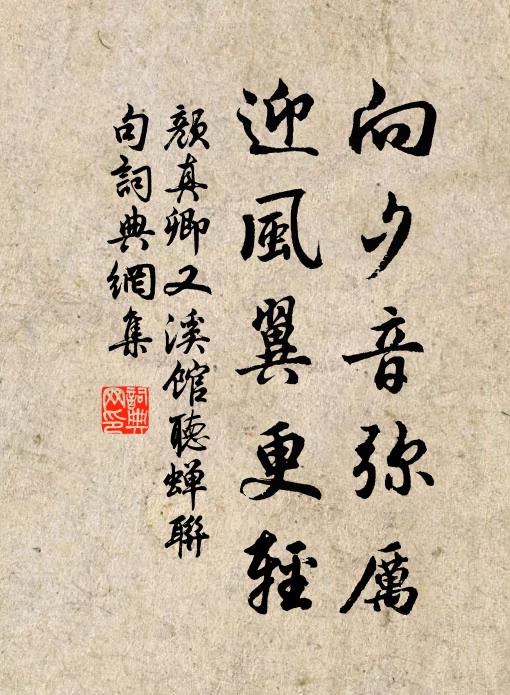 向夕音弥厲
迎風翼更輕
顏真卿又溪館聽蟬聯
句詞典網集
詞典
网印